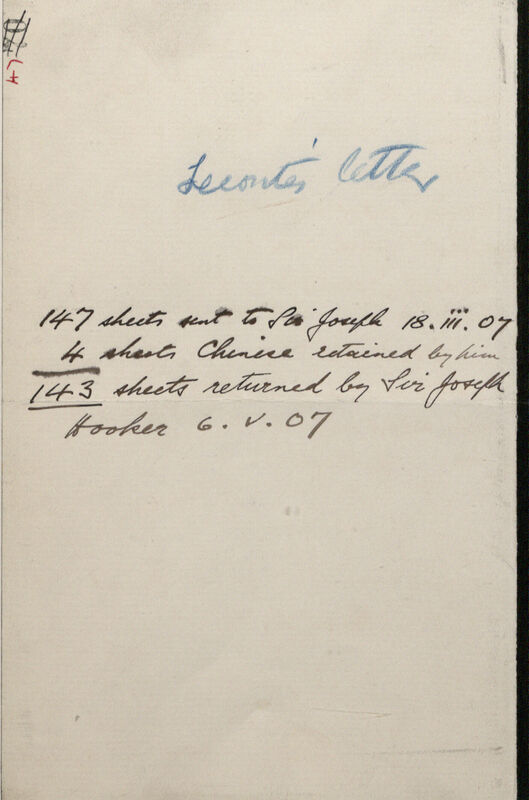 47
Lecomte's letter
147 sheets sent to Sir Joseph 18.iii.07
4 sheets Chinese retained by him
143 sheets returned by Sir Joseph
Hooker 6.V.07